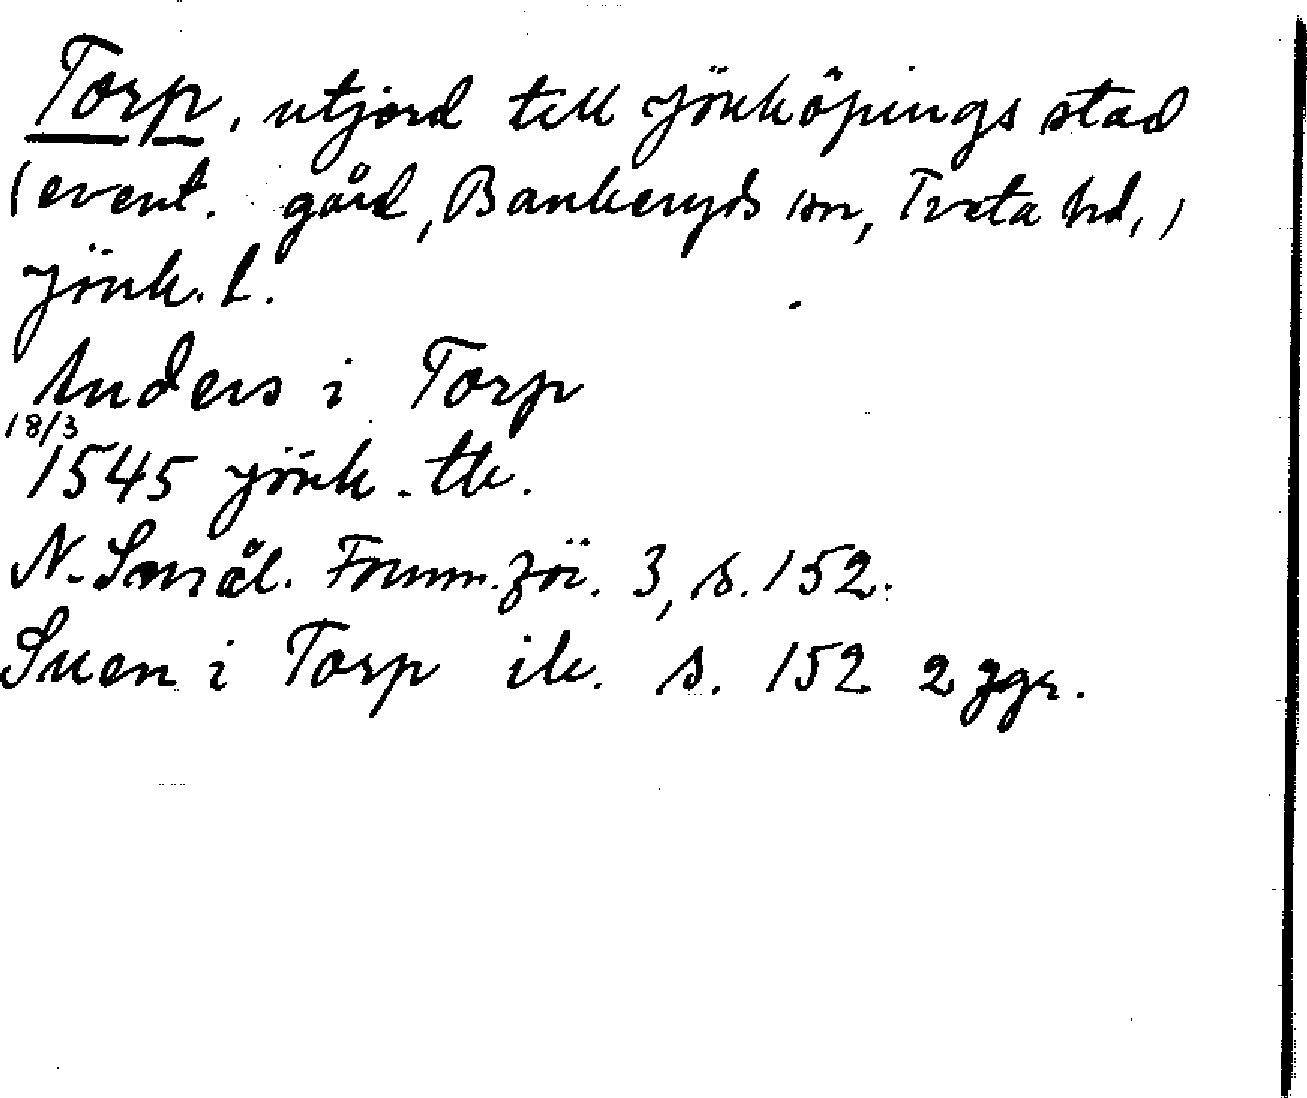 Torp, utjord till Jönköpings stad
(event. gård, Bankeryds sn, Tveta hd,)
Jönk. l.
Anders i Torp
18/3
1545 Jönk. tb.
N. Smål. Fornm.för. 3, s. 152.
Suen i Torp ib. s. 152 2 ggr.